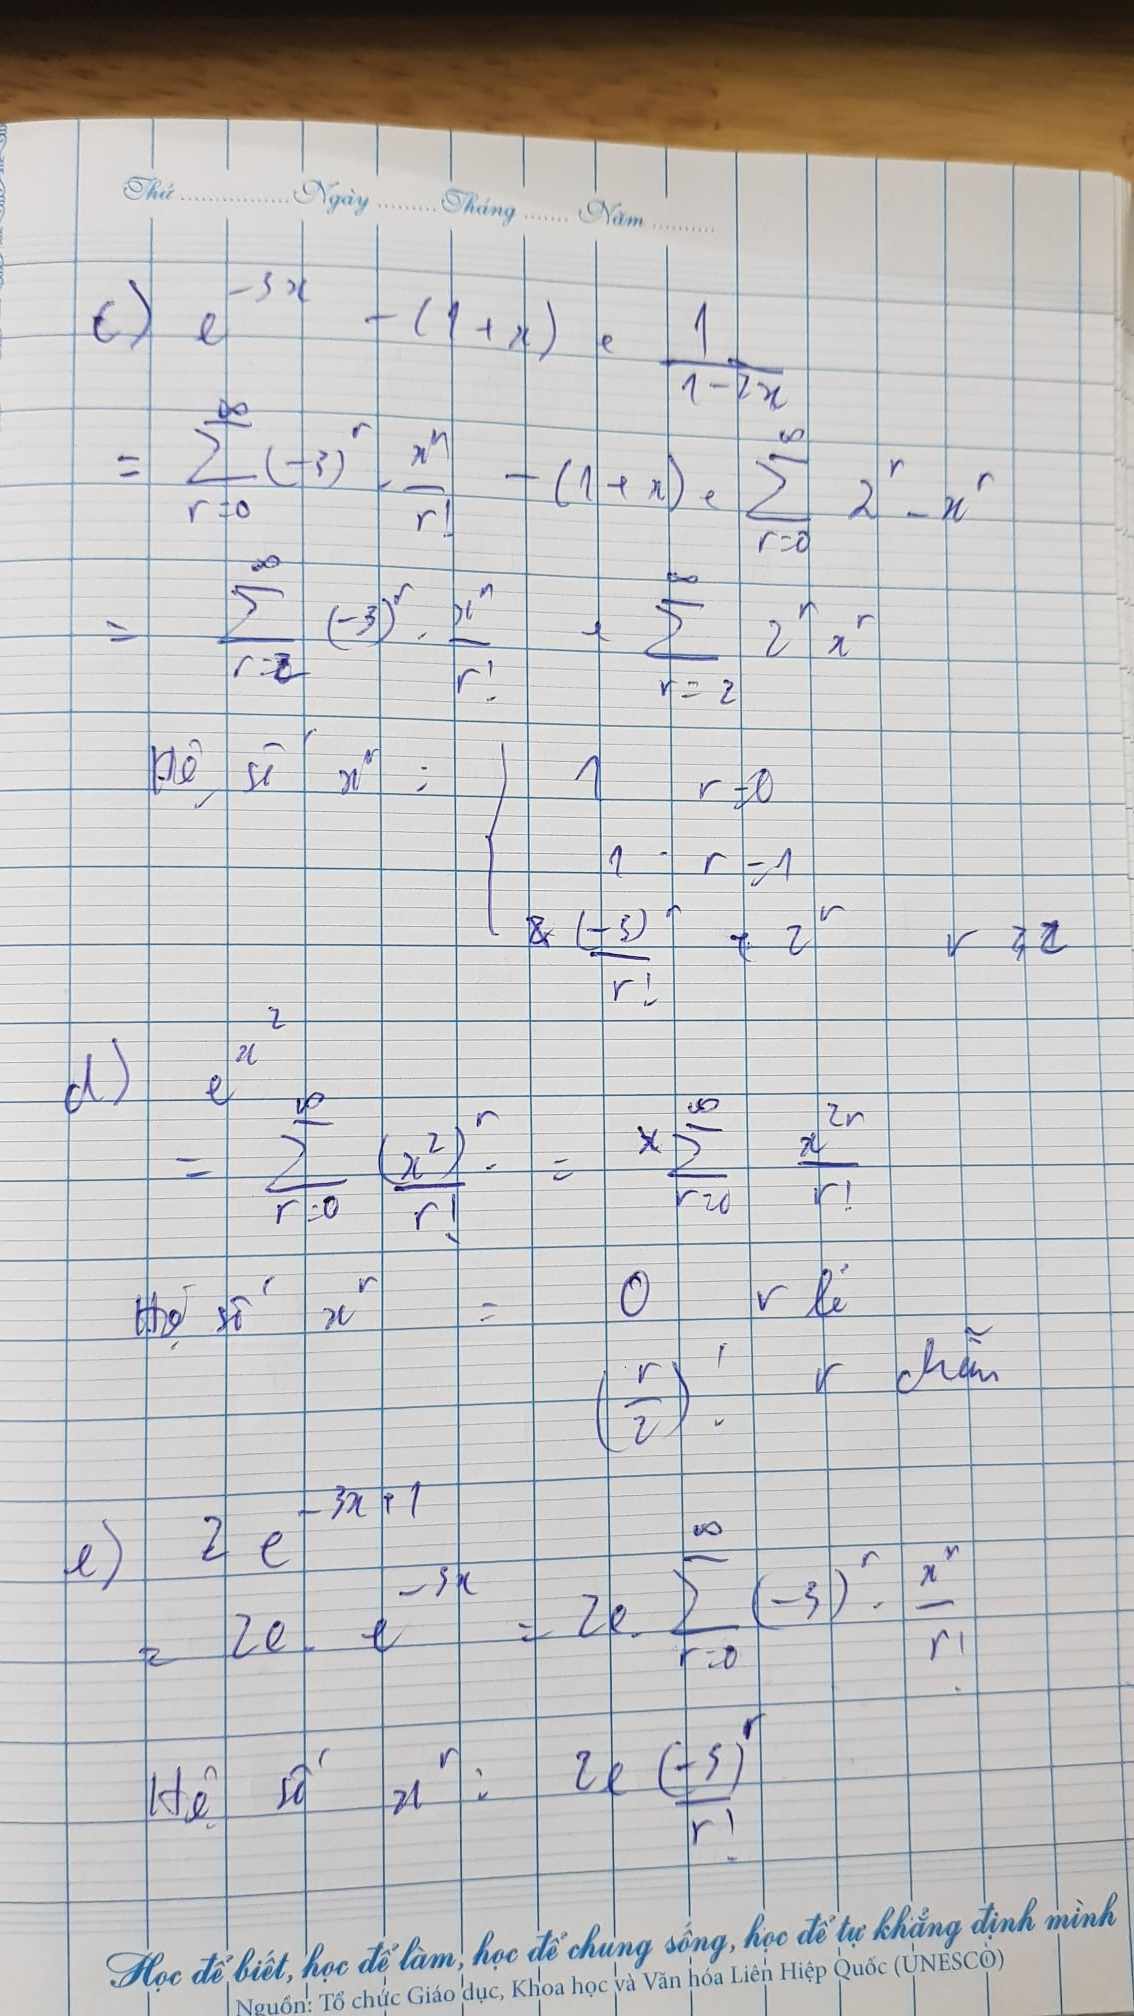 Thứ ................ Ngày ......... Tháng ....... Năm ..........
c) e^{-3x} - (1 + x) . \frac{1}{1-2x}
= \sum_{r=0}^{∞} (-3)^r . \frac{x^r}{r!} - (1 + x) . \sum_{r=0}^{∞} 2^r - x^r
= \sum_{r=2}^{∞} (-3)^r . \frac{x^r}{r!} + \sum_{r=2}^{∞} 2^r x^r
Hệ số x^r : { 1 r=0
1 r=1
\frac{(-3)^r}{r!} + 2^r r ≥ 2
d) e^{x^2}
= \sum_{r=0}^{∞} \frac{(x^2)^r}{r!} . = \sum_{r=0}^{∞} \frac{x^{2r}}{r!}
Hệ số x^r = 0 r lẻ
(\frac{r}{2})! r chẵn
e) 2 e^{-3x+1}
= 2e . e^{-3x} = 2e . \sum_{r=0}^{∞} (-3)^r . \frac{x^r}{r!}
Hệ số x^r : 2e \frac{(-3)^r}{r!}
Học để biết, học để làm, học để chung sống, học để tự khẳng định mình
Nguồn: Tổ chức Giáo dục, Khoa học và Văn hóa Liên Hiệp Quốc (UNESCO)